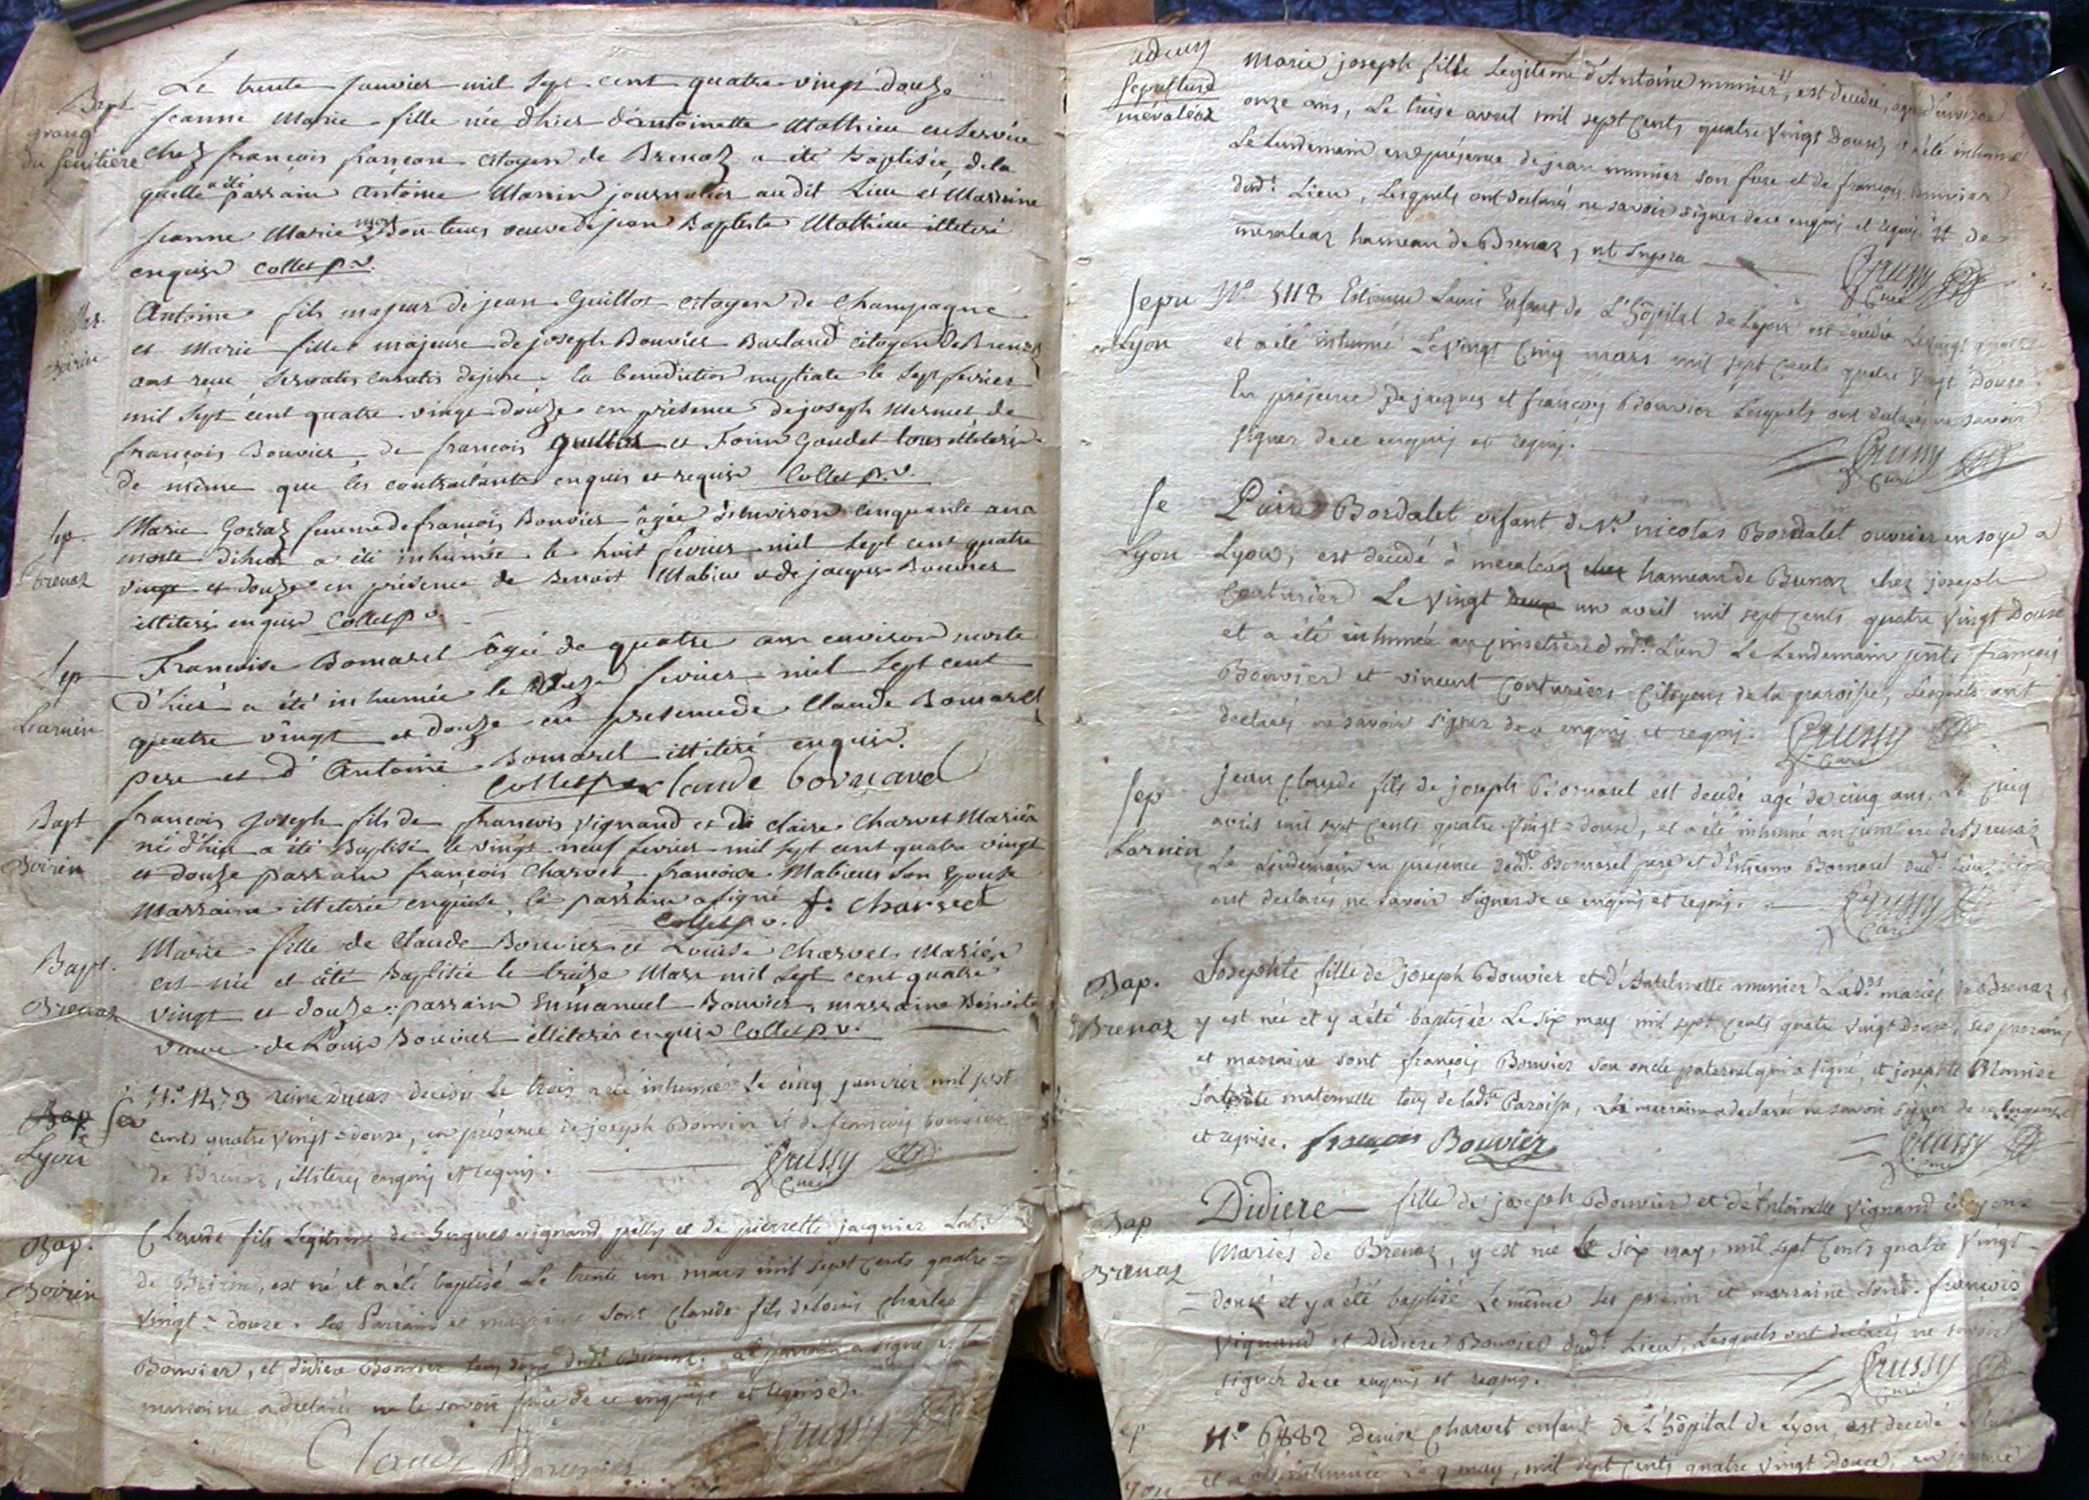 Le trente janvier mil sept cent quatre vingt douze
Bapt
grange
du simitière
jeanne Marie fille née d'hier d'Antoinette Mathieu en service
chez françois citoyen de Brenaz a été baptisée, de la
quelle a été parrain Antoine journalier au dit Lieu et Marraine
jeanne Marie veuve de jean Baptiste Mathieu illiteré
enquise Collet p.v.
Antoine fils majeur de jean Guillot citoyen de Champagne
et Marie fille majeure de joseph Bouvier citoyen de Brenaz
ont reçu servatis de jure la benediction nuptiale le sept fevrier
mil sept cent quatre vingt douze en présence de joseph Mermet de
françois Bouvier de françois guillot et Goudet tous illiterés
de même que les contractants enquis et requis Collet p.v.
Sep.
brenaz
Marie femme de françois Bouvier âgée d'environ cinquante ans
morte d'hier a été inhumée le huit fevrier mil sept cent quatre
vingt et douze en présence de Benoit Mabieu et de jacques Bouvier
illiterés enquis Collet p.v.
Sep
Larnin
Francoise Bomarel âgée de quatre ans environ morte
d'hier a été inhumée le fevrier mil sept cent
quatre vingt et douze en presence de Claude Bomarel
pere et d'Antoine Bomarel illiteré enquis.
Collet claude bornarel
Bapt
Boirin
francois joseph fils de francois vignand et de claire Charvet Mariés
né d'hier a été Baptisé le vingt neuf fevrier mil sept cent quatre vingt
et douze parrain françois Charvet françoise Mabieux son Epouse
Marraine illiterée enquise, le parrain a signé f. charvet
Collet p.v.
Bapt.
Brenaz
Marie fille de Claude Bouvier et Louise Charvet Mariés
est née et été Baptisée le treize Mars mil sept cent quatre
vingt et douze parrain Emmanuel Bouvier, marraine Benoite
veuve de Louis Bouvier illiterés enquis Collet p.v.
Bap Se
Lyon
N.º 1473 reine decedée Le trois a été inhumée Le cinq janvier mil sept
cents quatre vingt douze, en présence de joseph Bouvier et de françois bouvier
de Brenaz, illiterés enquis et requis.
Crussy
Curé
Bap.
Boirin
Claude fils legitime de Hugues vignand petty et de pierrette jacquier
de Boirin, est né et a été baptisé Le trente un mars mil sept cents quatre
vingt = douze. Les Parrain et marraine sont Claude fils de louis Charles
Bouvier, et didiere Bouvier tous deux dudt Brenaz. le parrain a signé et la
marraine a declaré ne le savoir faire de ce enquise et requise.
Claude Bouvier Crussy
Sepulture
mévaléaz
Marie joseph fille Legitime d'Antoine munier, est decedée, agée d'environ
onze ans, Le treise avril mil sept cents quatre vingt Douze, et a été inhumé
Le Lendemain en présence de jean munier son frere et de françois
dudt Lieu, Lesquels ont declarés ne savoir signer de ce enquis et requis. de
mévaleaz hameau de Brenaz, ut supra
Crussy
Curé
Sepu
Lyon
N.º 5118 Estienne Louis Enfant de L'hôpital de Lyon est decedé Le vingt quatre
et a été inhumé Le vingt Cinq mars mil sept Cents quatre vingt Douse.
En présence De jacques et françois Bouvier Lesquels ont declarés ne savoir
signer de ce enquis et requis.
Crussy
Curé
Se
Lyon
Bordalet enfant de Sr nicolas Bordalet ouvrier en soye a
Lyon, est decedé à mevaleaz hameau de Brenaz chez joseph
Couturier Le vingt un avril mil sept cents quatre vingt Douze
et a été inhumé au cimetiere dudt. Lieu Le Lendemain françois
Bouvier et vincent Couturiers Citoyens de la paroisse, Lesquels ont
declarés ne savoir signer de ce enquis et requis.
Crussy
Curé
Sep
Larnin
Jean Claude fils de joseph Bornarel est decedé agé de cinq ans, Le cinq
avril mil sept Cents quatre vingt = douze, et a été inhumé au cimetiere de Brenaz
Le Lendemain en présence dudt Bornarel pere et d'Estienne Bornarel dudt Lieu,
ont declarés ne savoir signer de ce enquis et requis.
Crussy
Curé
Bap.
Brenaz
Josephte fille de joseph Bouvier et d'Antoinette munier mariés de Brenaz
y est née et y a été baptisée Le six may mil sept Cents quatre vingt Douze, ses parrain
et marraine sont françois Bouvier son oncle paternel qui a signé, et josephte
sa maternelle tous de ladte Paroisse, La marraine a declaré ne savoir signer de ce enquise
et requise. françois Bouvier
Crussy
Curé
Bap
Brenaz
Didiere fille de joseph Bouvier et d'Antoinette vignand citoyens
Mariés de Brenaz, y est née le six may, mil sept Cents quatre vingt
douze et y a été baptisé Le même ses parrain et marraine sont françois
vignand et Didiere Bouvier dudt Lieu, Lesquels ont declarés ne savoir
signer de ce enquis et requis.
Crussy
Curé
N.º 6882 Denise Charvet enfant de L'hôpital de Lyon, est decedé
et a été inhumée Le 9 may, mil sept Cents quatre vingt Douze, en présence